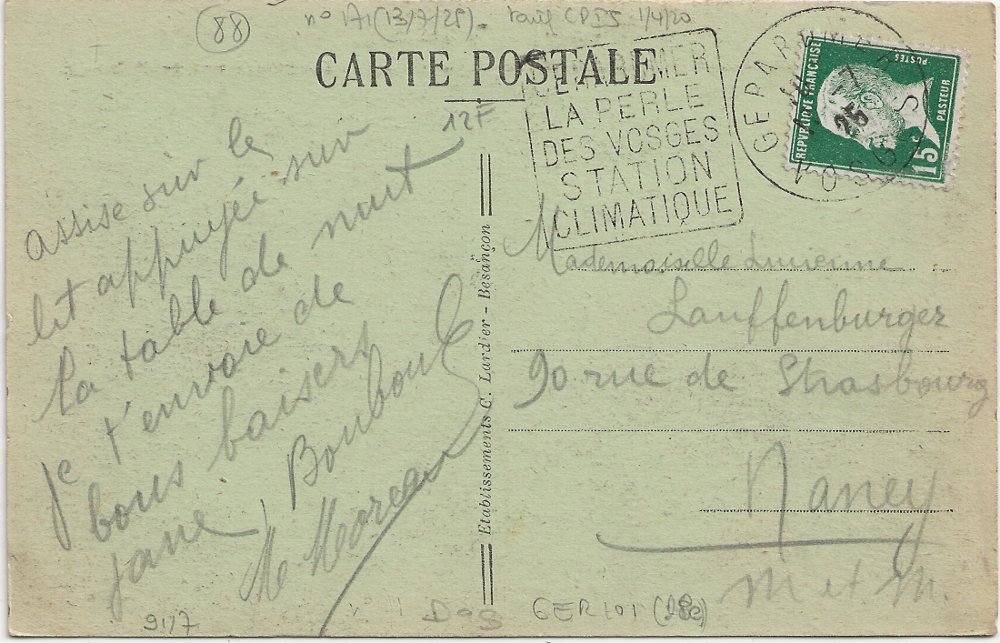 88
n° 171 (13/7/25) tarif CP 1/4/20
CARTE POSTALE
12F
GERARDMER
LA PERLE
DES VOSGES
STATION
CLIMATIQUE
GERARDMER
25
VOSGES
REPUBLIQUE FRANÇAISE
POSTES
PASTEUR
15c
assise sur le
lit appuyée sur
la table de nuit
je t'envoie de
bons baisers
M Moreau
Etablissements C. Lardier - Besançon
Mademoiselle Lucienne
Lauffenburger
90 rue de Strasbourg
Nancy
M et M.
9117
GER101